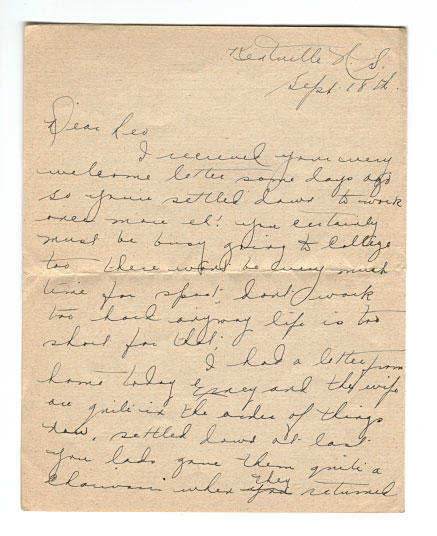 Kentville N. S.
Sept. 18th.
Dear Leo
I received your very
welcome letter some days ago
so your settled down to work
once more eh! you certainly
must be busy going to College
too there wont be very much
time for sport, dont work
too hard anyway life is too
short for that.
I had a letter from
home today and the wife
are quite in the order of things
now, settled down at last
you lads gave them quite a
when they returned